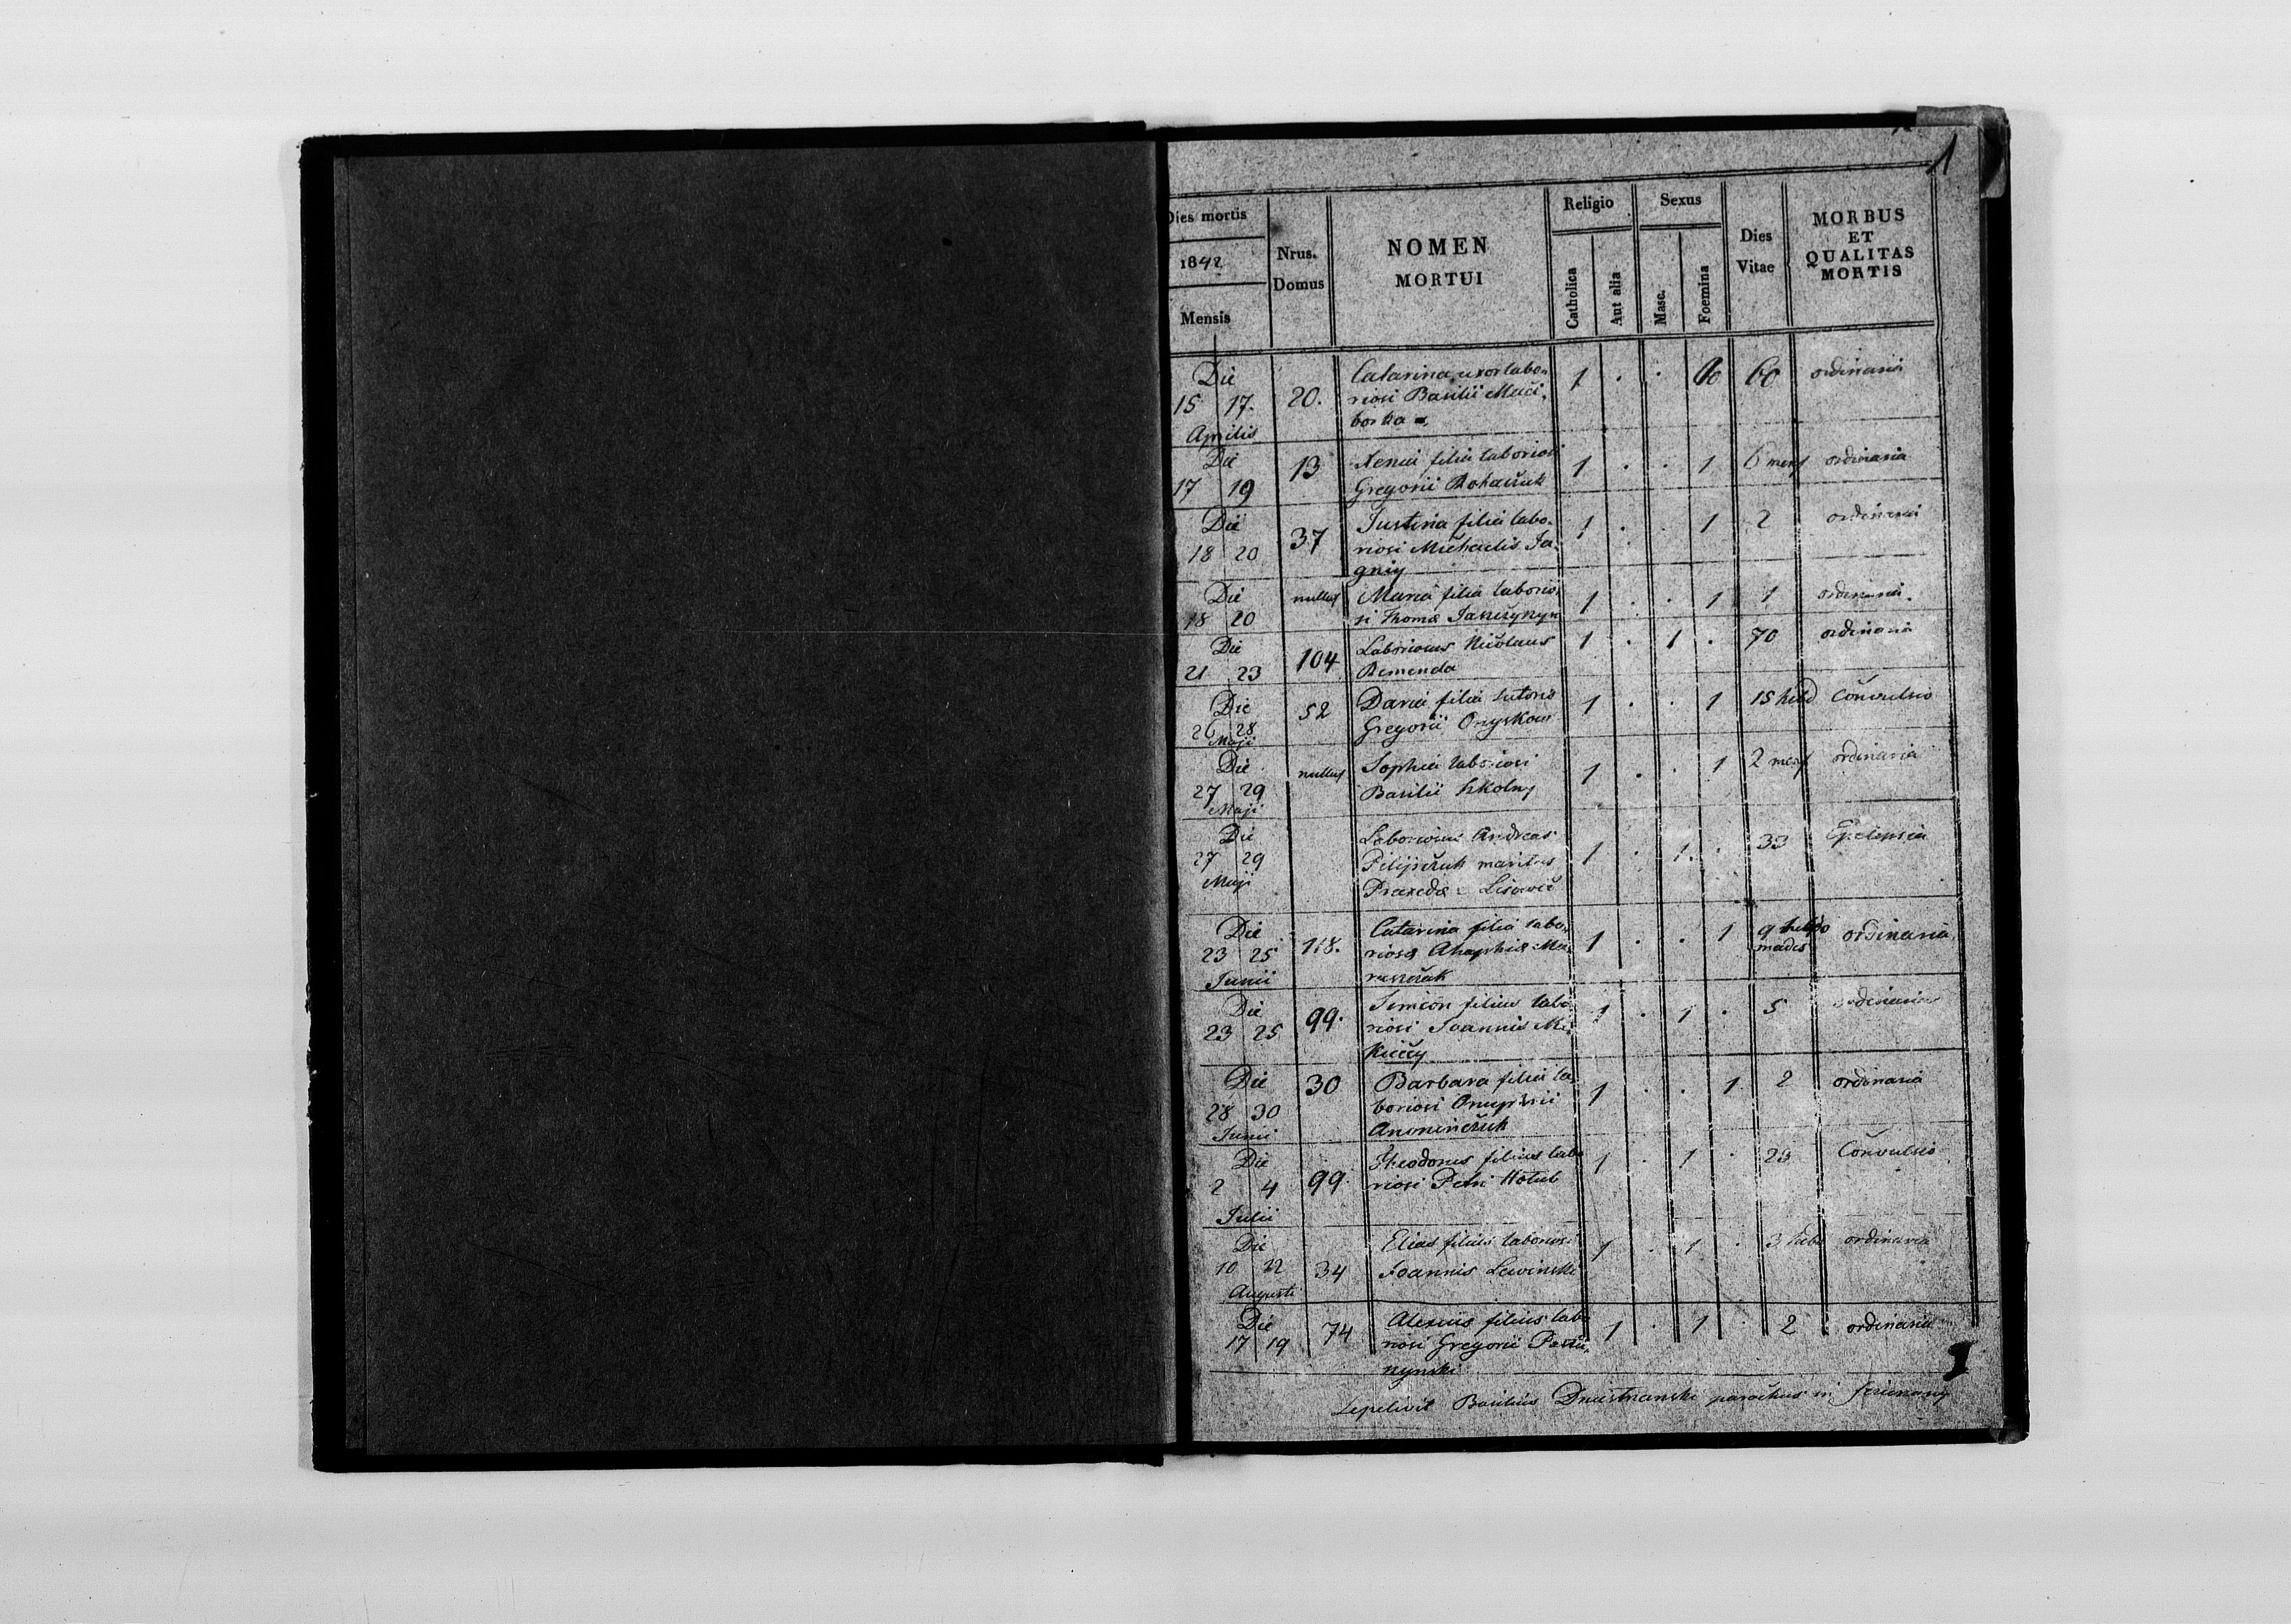 1
Dies mortis
1842
Mensis
Nrus.
Domus
NOMEN
MORTUI
Religio
Catholica
Aut alia
Sexus
Masc.
Foemina
Dies
Vitae
MORBUS
ET
QUALITAS
MORTIS
Die
15 17.
Aprilis
20.
Catarina uxor labo-
riosi Basilii
1 . . 60 ordinaria
Die
17 19
13
Xenia filia laboriosi
Gregorii
1 . . 1 6 mens ordinaria
Die
18 20
37
Justina filia labo-
riosi Michaelis Ja-
gniy
1 . . 1 2 ordinaria
Die
18 20
nullus
Maria filia laborio-
si Thomae
1 . . 1 1 ordinaria.
Die
21 23
104
Laboriosus Nicolaus
Remenda
1 . 1 . 70 ordinaria
Die
26 28
Maji
52
Daria filia sutoris
Gregorii Onyskow
1 . . 1 15 hebd Convulsio
Die
27 29
Maji
nullus
Sophia laboriosi
Basilii Szkolny
1 . . 1 2 mens ordinaria
Die
27 29
Maji
Laboriosus Andreas
Pilipczuk maritus
Praxedae
1 . 1 . 33 Epilepsia
Die
23 25
Junii
118.
Catarina filia labo-
riosae
1 . . 1 9 hebdo
mades
ordinaria
Die
23 25
99.
Simeon filius labo-
riosi Joannis
1 . 1 . 5 ordinaria
Die
28 30
Junii
30
Barbara filia la-
boriosi Onuphrii
1 . . 1 2 ordinaria
Die
2 4
Julii
99.
Theodorus filius labo
riosi Petri Holub
1 . 1 . 23 Convulsio
Die
10 12
Augusti
34
Elias filius laboriosi
Joannis Lewinski
1 . 1 . 3 hebd ordinaria
Die
17 19
74
Alexius filius labo
riosi Gregorii
1 . 1 . 2 ordinaria
1
Sepelivit Basilius Dniestrzanski parochus in